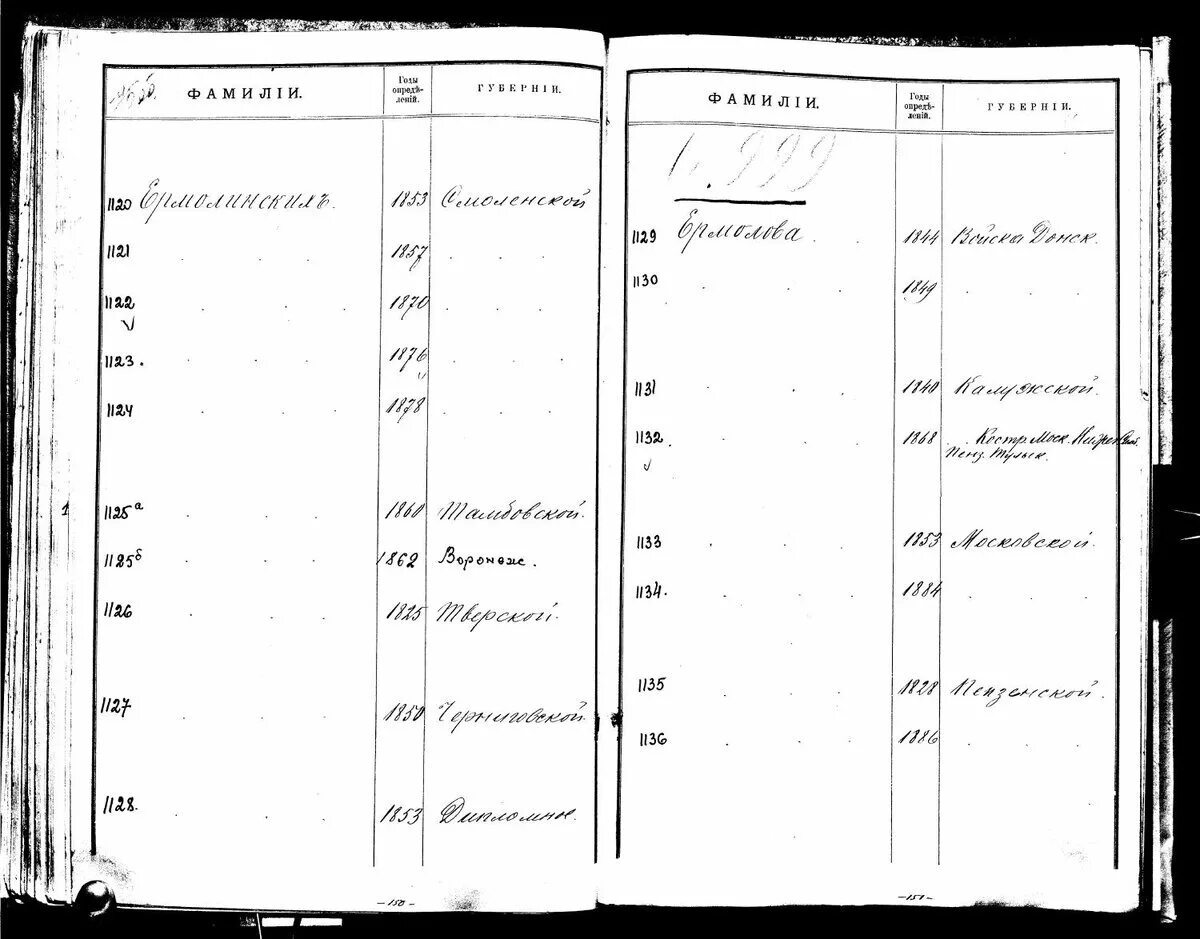 ФАМИЛІИ. Годы опредѣ- леній. ГУБЕРНІИ.
1120 Ермолинскихъ. 1853 Смоленской
1121 . . . 1857 . . .
1122 . . . 1870 . . .
1123 . . . . 1876 . . .
1124 . . . 1878 . . .
1125а . . . 1860 Тамбовской.
1125б . . . 1862 Воронеж.
1126 . . . 1825 Тверской.
1127 . . . 1850 Черниговской
1128. . . . 1853 Дипломное.
— 150 —
ФАМИЛІИ. Годы опредѣ- леній. ГУБЕРНІИ.
999
1129 Ермолова . . 1844 Войска Донск.
1130 . . . 1849 . . .
1131 . . . 1840 Калужской.
1132 . . . 1868 Костр. Моск.
Пенз. Тульск.
1133 . . . 1853 Московской.
1134. . . . 1884 . . .
1135 . . . 1828 Пензенской.
1136 . . . 1886 . . .
— 151 —